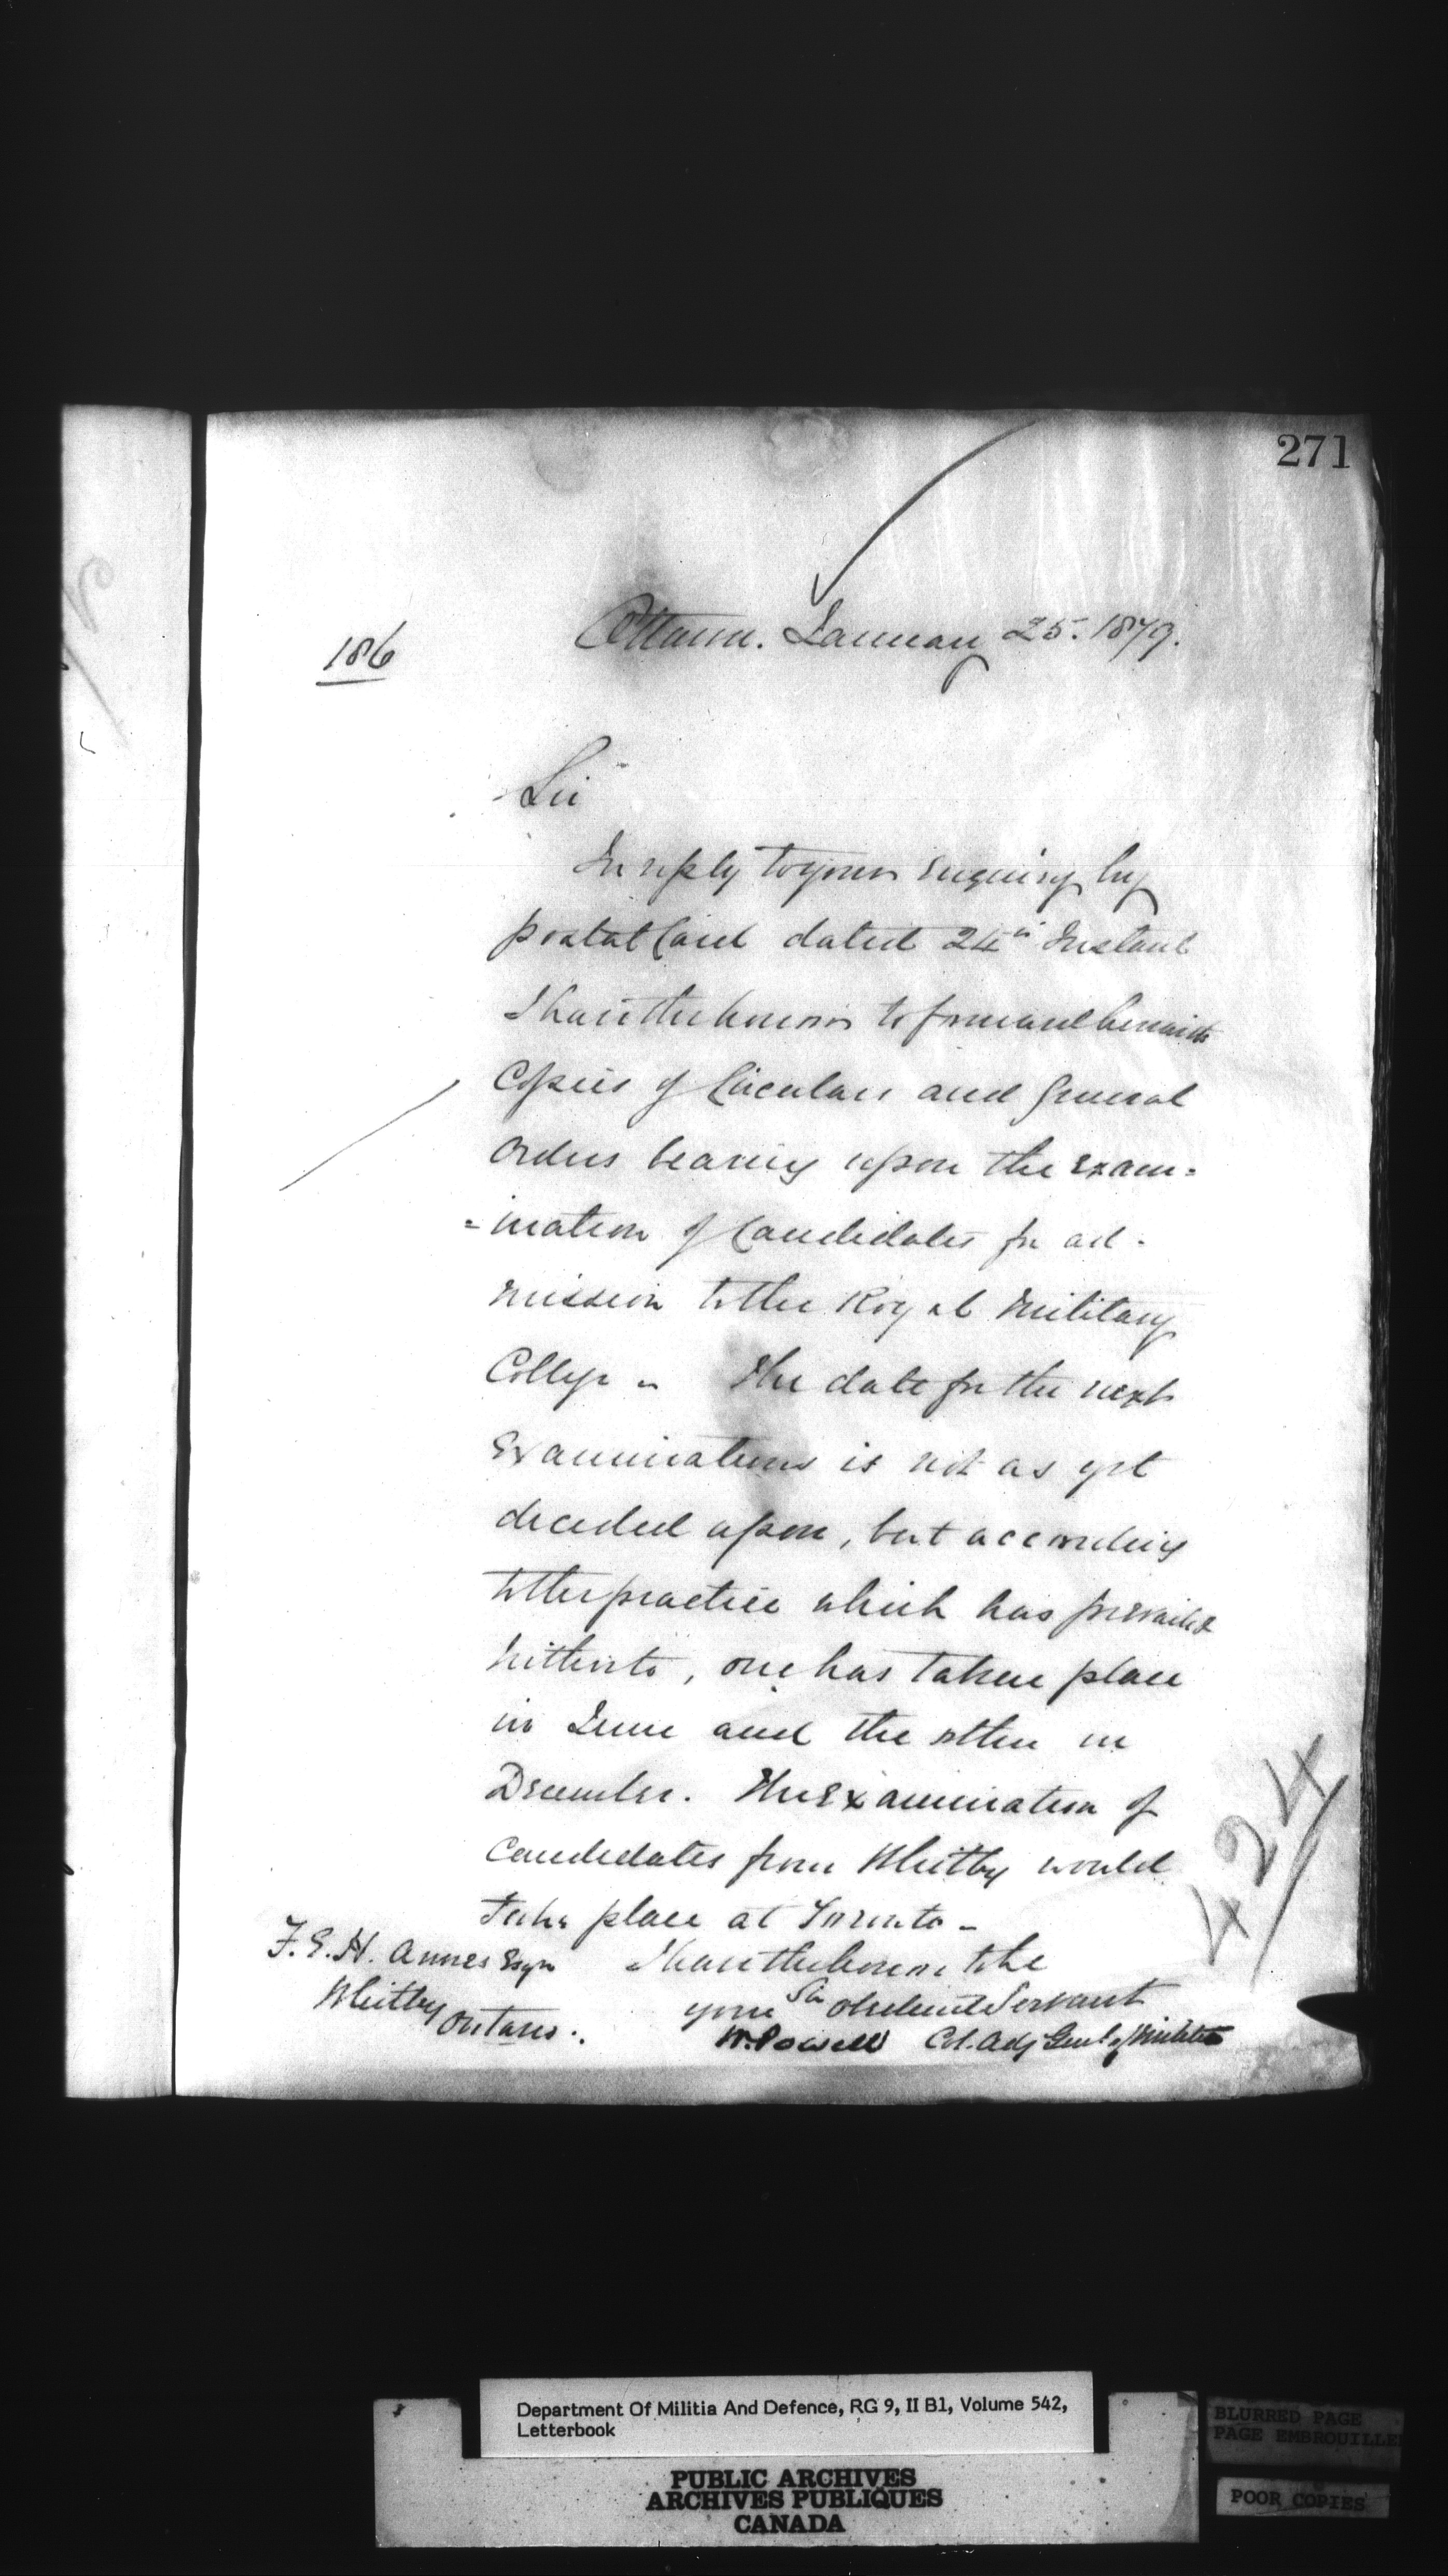 271
186
Ottawa. January 25. 1879.
Sir
In reply to your enquiry by
postal Card dated 24th Instant
I have the honor to forward herewith
Copies of Circulars and General
Orders bearing upon the exam=
=ination of Candidates for ad-
mission to the Royal Military
College - The date for the next
Examinations is not as yet
decided upon, but according
to the practice which has prevailed
hitherto, one has taken place
in June and the other in
December. The Examination of
candidates from Whitby would
take place at Toronto -
I have the honor to be
Sir
your obedient Servant
W. Powell Col. Adj Genl of Militia
F. E. H. Annes Esqre
Whitby
Ontario.
424
Department Of Militia And Defence, RG 9, II B1, Volume 542,
Letterbook
PUBLIC ARCHIVES
ARCHIVES PUBLIQUES
CANADA
BLURRED PAGE
PAGE EMBROUILLE
POOR COPIES